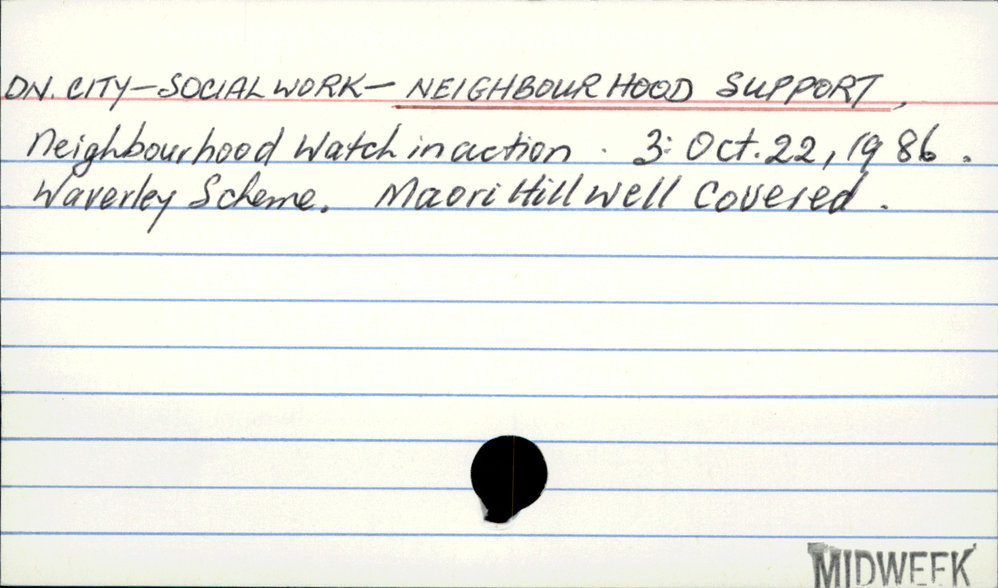 DN. CITY-SOCIAL WORK- NEIGHBOURHOOD SUPPORT,
Neighbourhood Watch in action. 3: Oct. 22, 1986.
Waverley Scheme. Maori Hill well covered.
MIDWEEK